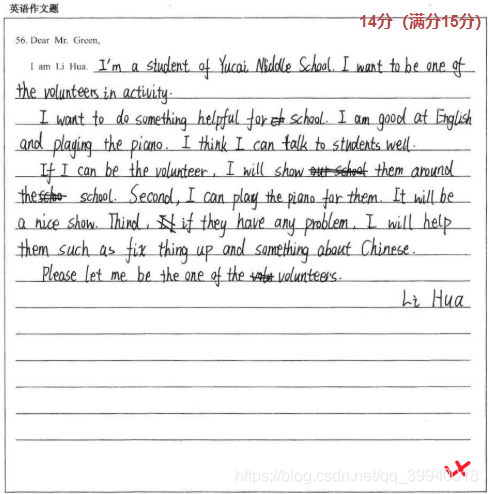 英语作文题
14分 (满分15分)
56. Dear Mr. Green,
I am Li Hua. I'm a student of Yucai Middle School. I want to be one of
the volunteers in activity.
I want to do something helpful for school. I am good at English
and playing the piano. I think I can talk to students well.
If I can be the volunteer, I will show our school them around
the scho school. Second, I can play the piano for them. It will be
a nice show. Third, If if they have any problem, I will help
them such as fix thing up and something about Chinese.
Please let me be the one of the volunteers.
Li Hua